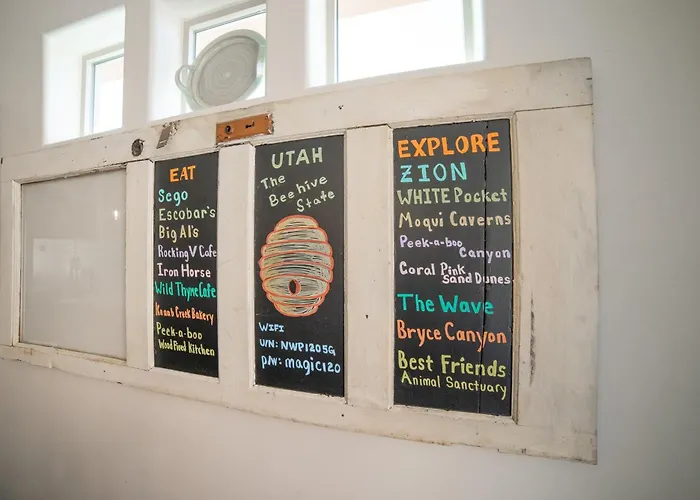 EAT
Sego
Escobar's
Big Al's
Rocking V Cafe
Iron Horse
Wild Thyme Cafe
Kanab Creek Bakery
Peek-a-boo
Wood Fired Kitchen
UTAH
The
Beehive
State
WIFI
U/N: NWP1205G
P/W: magic120
EXPLORE
ZION
WHITE Pocket
Moqui Caverns
Peek-a-boo
Canyon
Coral Pink
Sand Dunes
The Wave
Bryce Canyon
Best Friends
Animal Sanctuary